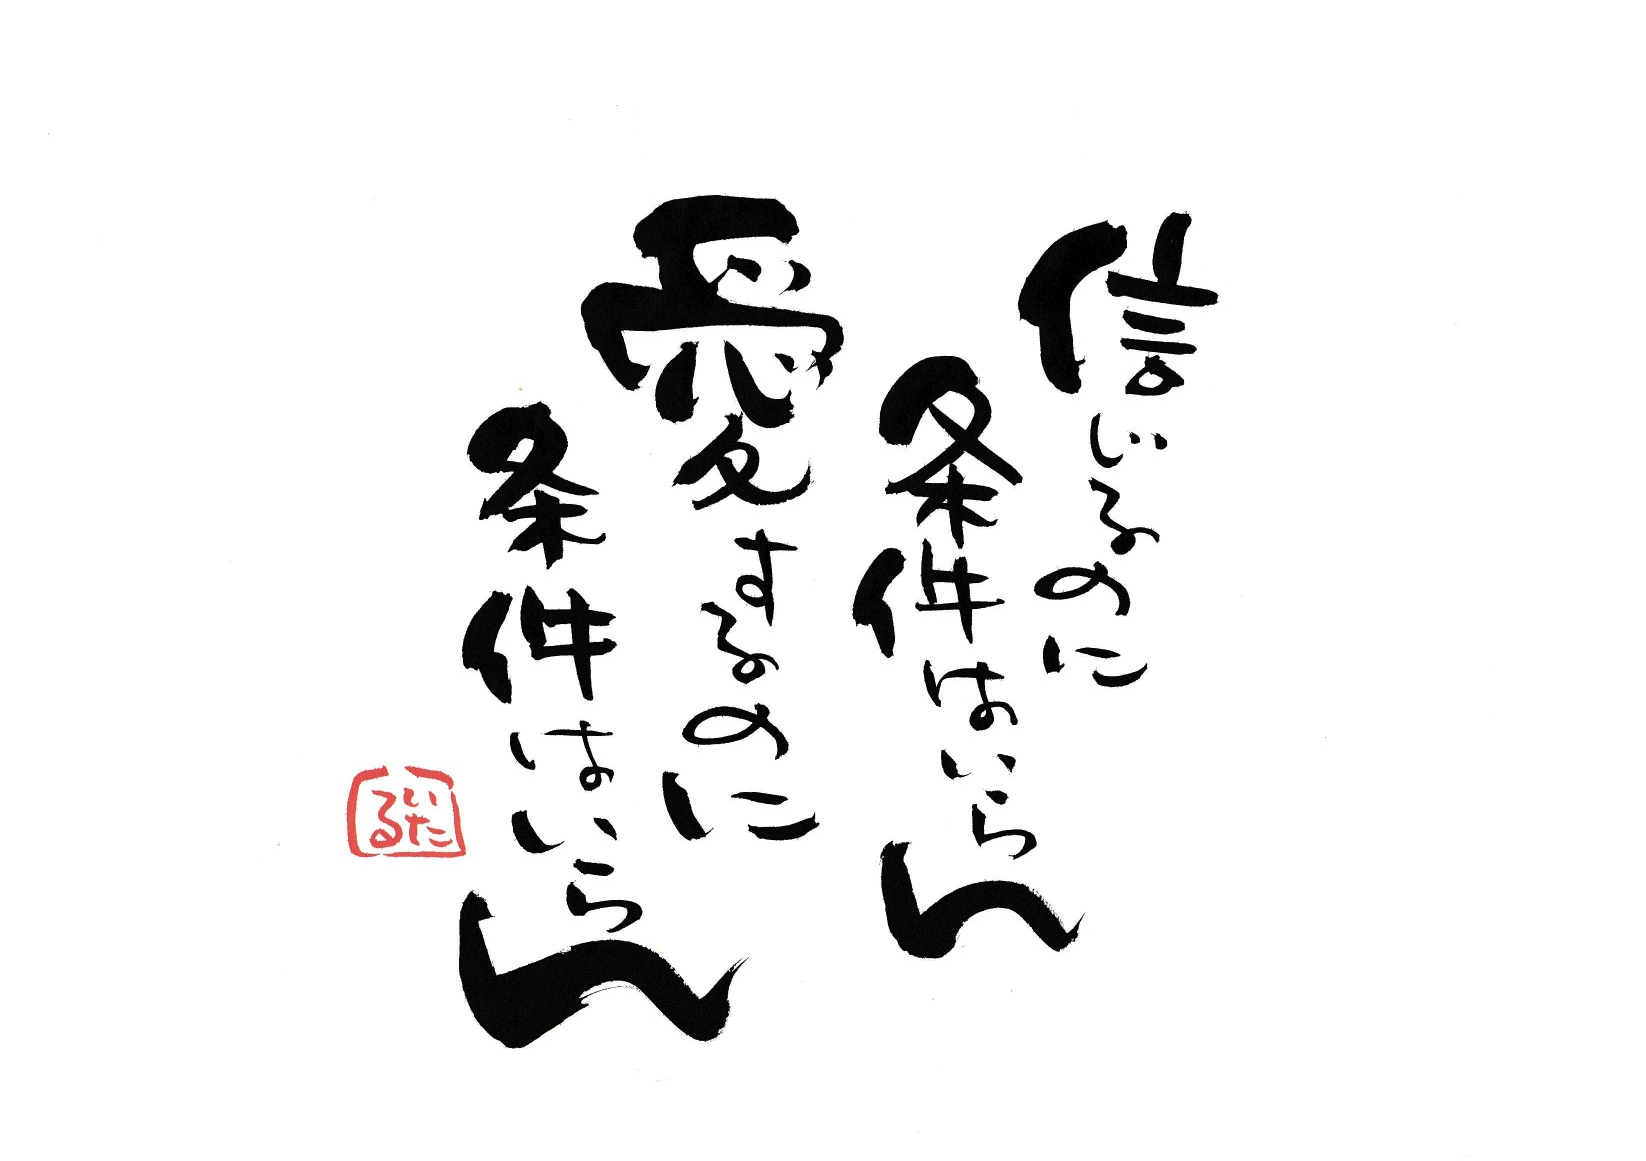 信じるのに
条件はいらん
愛するのに
条件はいらん
いたる